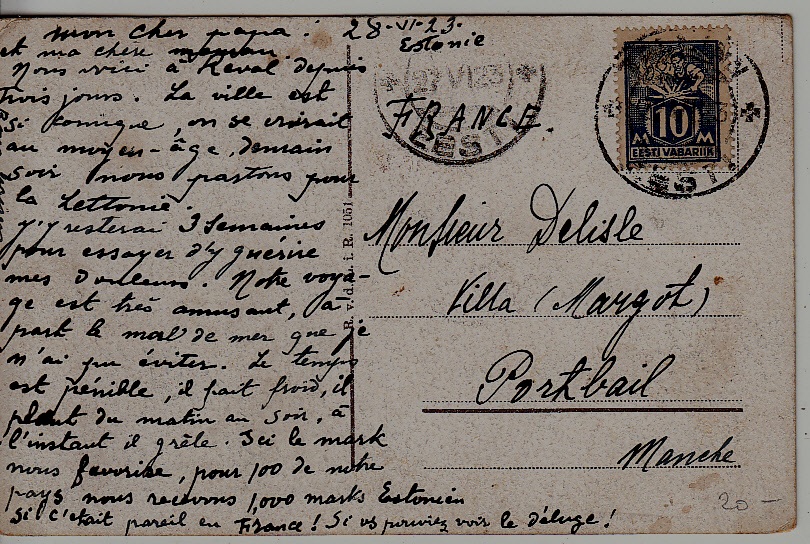 mon cher papa : 28-VI-23.
et ma chère maman Estonie
Nous voici à Reval depuis
trois jours. La ville est
si comique, on se croirait
au moyen-âge, demain
soir nous partons pour
la Lettonie.
J'y resterai 3 semaines
pour essayer d'y guérire
mes douleurs. Notre voya-
ge est très amusant, à-
part le mal de mer que je
n'ai pu éviter. Le temps
est pénible, il fait froid, il
pleut du matin au soir, à
l'instant il grêle. Ici le mark
nous favorise, pour 100 de notre
pays nous recevons 1,000 marks Estonien
Si c'était pareil en France ! Si vs pouviez voir le déluge !
R. v. d. i. R. 1051
27 VI 23
EESTI
FRANCE.
10
M M
EESTI VABARIIK
EESTI
Monsieur Delisle
Villa (Margot)
Portbail
Manche
20-